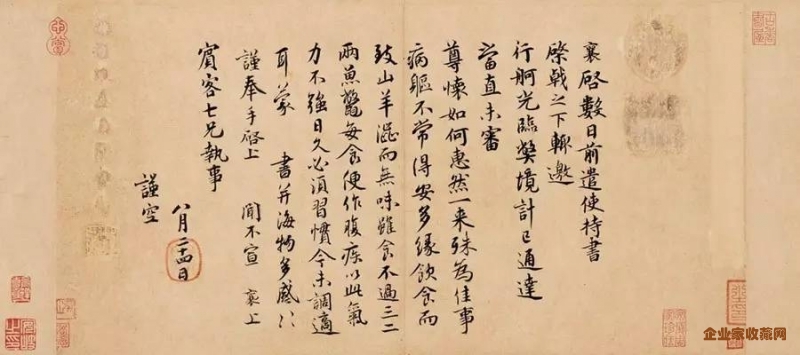 襄啓數日前遣使持書
棨戟之下輒邀
行舸光臨弊境計已通達
當直未審
尊懷如何惠然一来殊為佳事
病軀不常得安多緣飲食而
致山羊澀而無味雖食不過三二
兩魚鼈每食便作腹疾以此氣
力不强日久必須習慣今未調適
耳蒙 書并海物多感〻
謹奉手啓上 聞不宣 襄上
賓客七兄執事
八月廿四日
謹空
企业家收藏网